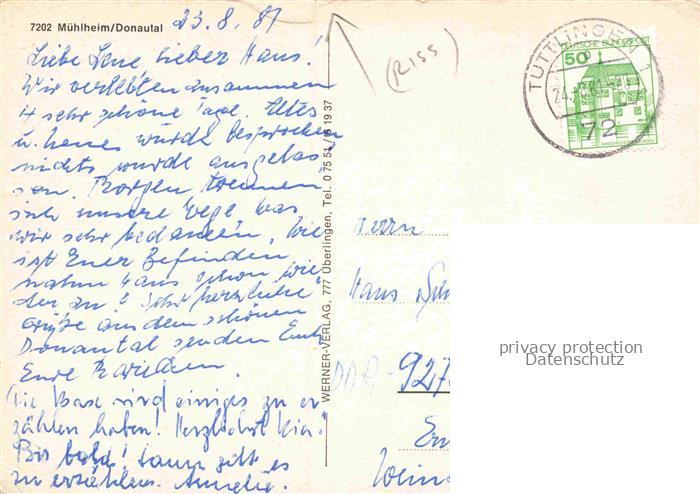 7202 Mühlheim/Donautal
23.8.81
Liebe Lene lieber Hans!
Wir verlebten zusammen
4 sehr schöne Tage. Altes
u. neues wurde besprochen
nichts wurde ausgelas-
sen. Morgen trennen
sich unsere Wege was
wir sehr bedauern. Wie
ist Euer Befinden
nahm Hans schon wie-
der zu? Sehr herzliche
Grüße aus dem schönen
Donautal senden Euch
Eure
Die Base wird einiges zu er-
zählen haben! Herzlichst
Bis bald! Dann gibt es
zu erzählen. Annelie.
WERNER-VERLAG, 777 Überlingen, Tel. 0 75 51 / 6 19 37
(RISS)
TUTTLINGEN 1
24.-8.81
72
DEUTSCHE BUNDESPOST
50
Herrn
Hans
DDR-927
privacy protection
Datenschutz